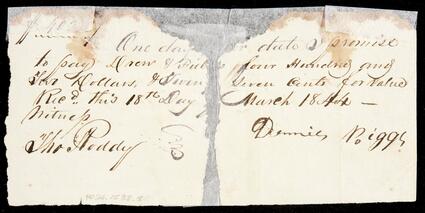 One day after date I promise
to pay Drew & four Hundred and
Dollars, & Seven Cents for value
Recd. this 18th Day March 1844 —
Witness
Tho Roddy Dennis Riggs